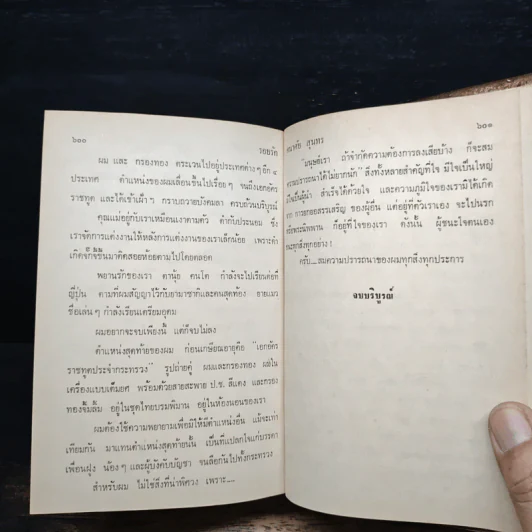 ๖๐๐
รอยรัก
ผม และ กรองทอง ตระเวนไปอยู่ประเทศต่างๆ อีก ๔
ประเทศ ตำแหน่งของผมเลื่อนขึ้นไปเรื่อยๆ จนถึงเอกอัคร
ราชทูต และได้เข้าเฝ้าฯ กราบถวายบังคมลา ครบถ้วนบริบูรณ์
คุณแม่อยู่กับเราเหมือนเงาตามตัว คำกับประนอม ซึ่ง
เราจัดการแต่งงานให้หลังการแต่งงานของเราเล็กน้อย เพราะคำ
เกิดจั๊กจี้ขึ้นมาคิดสอยห้อยตามไปโดยตลอด
พยานรักของเรา ตานุ้ย คนโต กำลังจะไปเรียนต่อที่
ญี่ปุ่น ตามที่ผมสัญญาไว้กับอามาชาติและคนสุดท้อง ยายแมว
ชื่อเล่นๆ กำลังเรียนเตรียมอุดม
ผมอยากจะจบเพียงนี้ แต่ก็จบไม่ลง
ตำแหน่งสุดท้ายของผม ก่อนเกษียณอายุคือ "เอกอัคร
ราชทูตประจำกระทรวง" รูปถ่ายคู่ ผมและกรองทอง ผมใน
เครื่องแบบเต็มยศ พร้อมด้วยสายสะพาย ป.ช. สีแดง และกรอง
ทองจิ้มลิ้ม อยู่ในชุดไทยบรมพิมาน อยู่ในห้องนอนของเรา
ผมต้องใช้ความพยายามเพื่อมิให้มีตำแหน่งอื่น แม้จะเท่า
เทียมกัน มาแทนตำแหน่งสุดท้ายนั้น เป็นที่แปลกใจแก่บรรดา
เพื่อนฝูง น้องๆ และผู้บังคับบัญชา จนลือกันไปทั้งกระทรวง
สำหรับผม ไม่ใช่สิ่งที่น่าพิศวง เพราะ...
๖๐๑
สุนทร
"มนุษย์เรา ถ้าจำกัดความต้องการลงเสียบ้าง ก็จะสม
ความปรารถนาได้ไม่ยากนัก" สิ่งทั้งหลายสำคัญที่ใจ มีใจเป็นใหญ่
ใจเป็นผู้นำ สำเร็จได้ด้วยใจ และความภูมิใจของเรามิได้เกิด
จาก การยกยอสรรเสริญ ของผู้อื่น แต่อยู่ที่ตัวเราเอง จะไปนรก
หรือพระนิพพาน ก็อยู่ที่ใจของเรา ดังนั้น ผู้ชนะใจตนเอง
ชนะทุกสิ่งทุกอย่าง !
ครับ...สมความปรารถนาของผมทุกสิ่งทุกประการ
จบบริบูรณ์